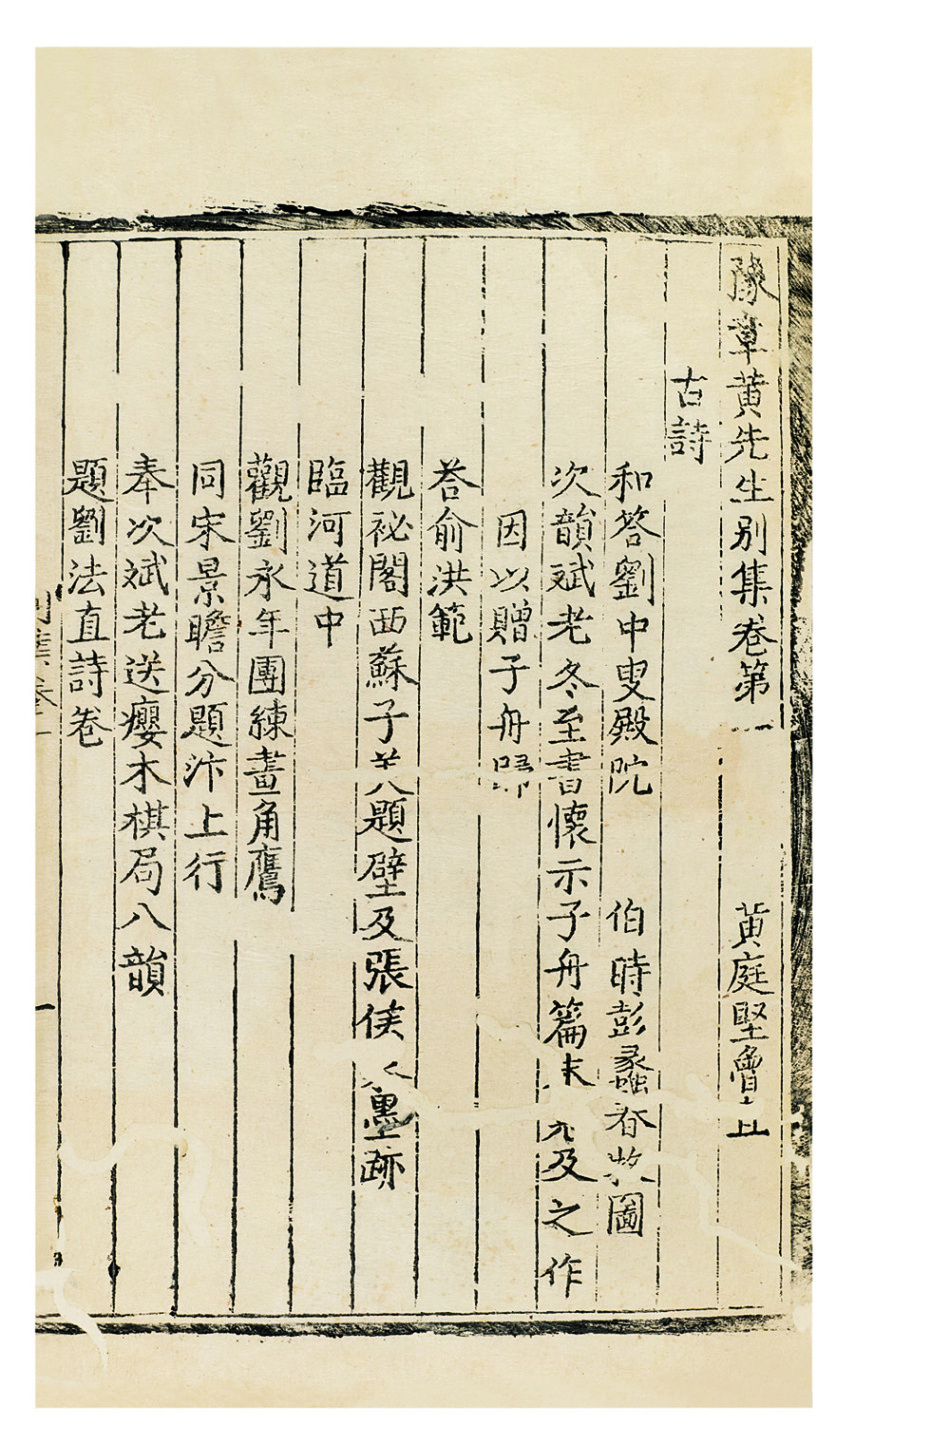 豫章黄先生别集卷第一 黄庭堅魯直
古詩
和答劉中叟殿院 伯時彭蠡春牧圖
次韻斌老冬至書懷示子舟篇末 及之作
因以贈子舟歸
荅俞洪範
觀祕閣西蘇子美題壁及張侯 墨跡
臨河道中
觀劉永年團練畫角鷹
同宋景瞻分題汴上行
奉次斌老送癭木棋局八韻
題劉法直詩卷
一